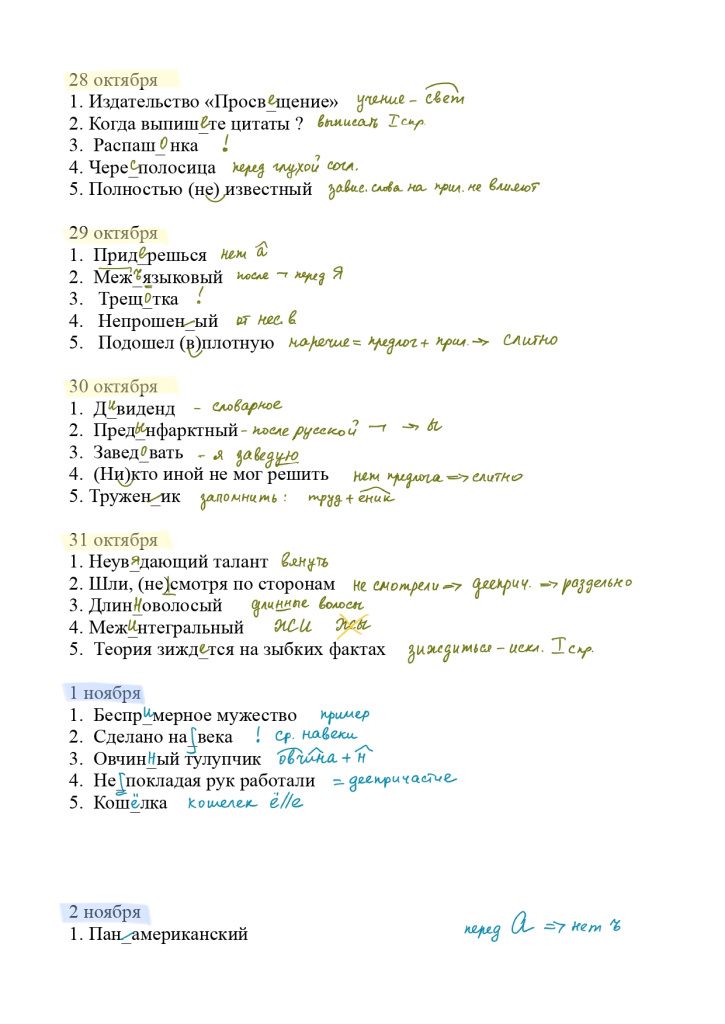 28 октября
1. Издательство «Просвещение» учение – свет
2. Когда выпишете цитаты ? выписать I спр.
3. Распашонка !
4. Чересполосица перед глухой согл.
5. Полностью (не) известный завис. слова на прил. не влияют
29 октября
1. Придерешься нет а
2. Межъязыковый после ¬ перед Я
3. Трещотка !
4. Непрошен_ый от нес. в
5. Подошел (в)плотную наречие = предлог + прил. → слитно
30 октября
1. Дивиденд – словарное
2. Предынфарктный – после русской ¬ → ы
3. Заведовать – я заведую
4. (Ни)кто иной не мог решить нет предлога => слитно
5. Тружен_ик запомнить : труд + еник
31 октября
1. Неувядающий талант вянуть
2. Шли, (не)смотря по сторонам не смотрели => дееприч. => раздельно
3. Длинноволосый длинные волосы
4. Межинтегральный ЖИ жы
5. Теория зиждется на зыбких фактах зиждиться – искл. I спр.
1 ноября
1. Беспримерное мужество пример
2. Сделано на века ! ср. навеки
3. Овчинный тулупчик овчина + н
4. Не покладая рук работали = деепричастие
5. Кошёлка кошелек ё//е
2 ноября
1. Пан_американский перед А => нет ъ